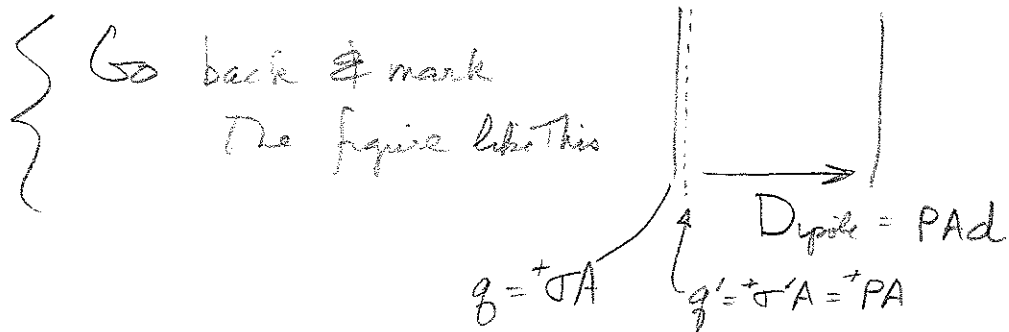 Go back & mark
The figure like This
Dipole = PAd
q = ⁺σA
q' = ⁺σ'A = ⁺PA